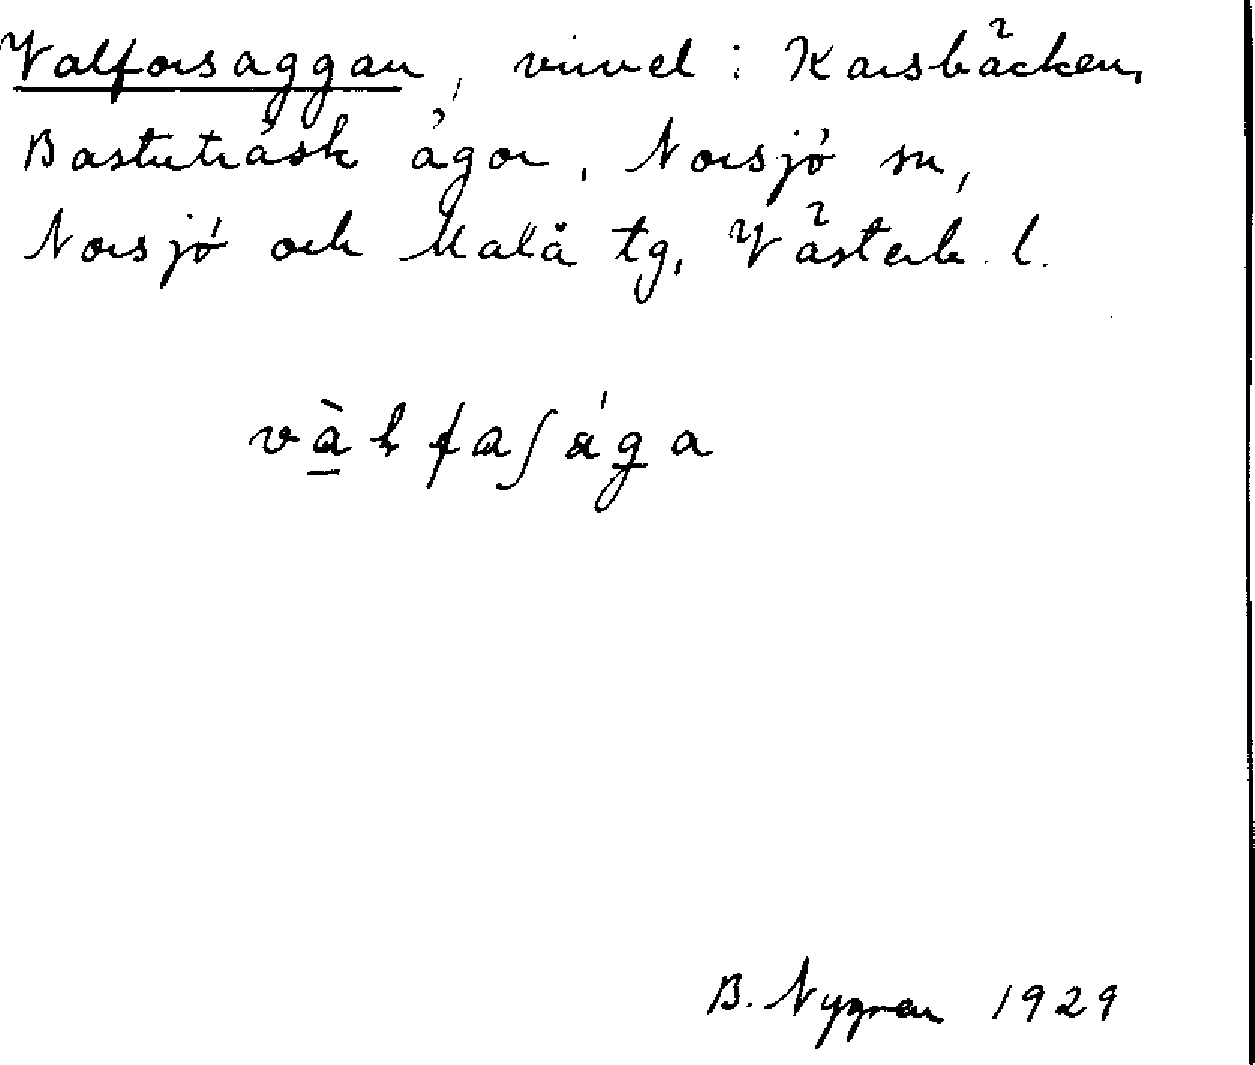 Valforsaggan, virvel i Karsbäcken,
Bastuträsk ägor, Norsjö sn,
Norsjö och Malå tg, Västerb. l.
và̱lfaʃága
B. Nygren 1929